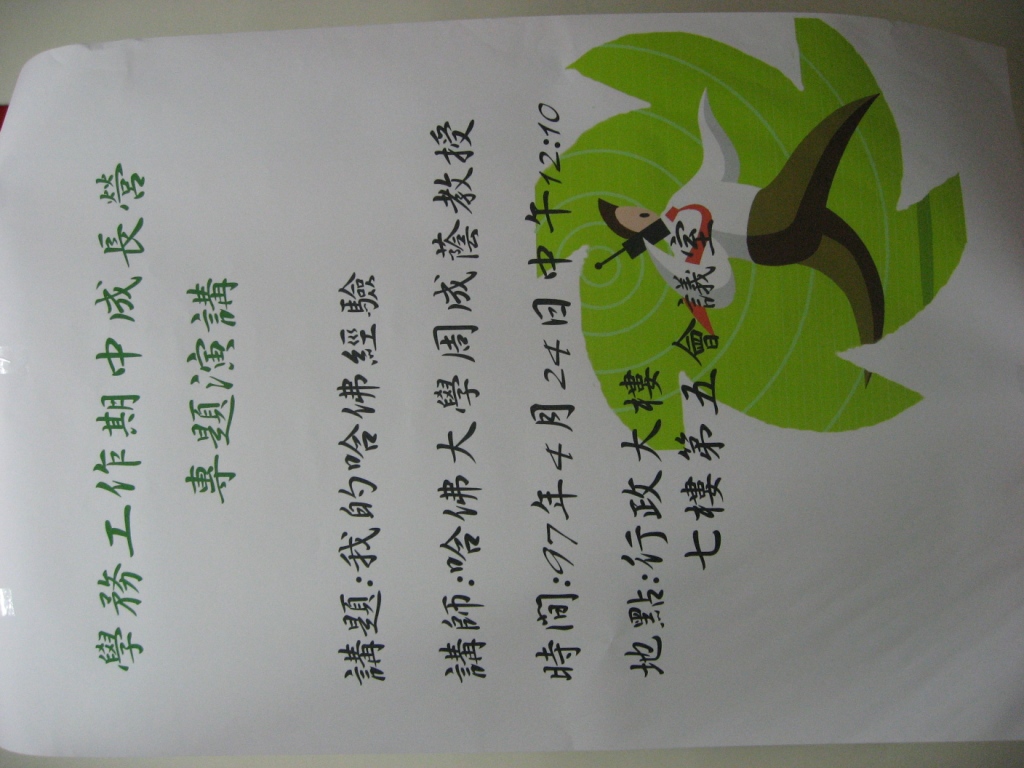 學務工作期中成長營
專題演講
講題:我的哈佛經驗
講師:哈佛大學周成蔭教授
時間:97年4月24日中午12:10
地點:行政大樓
七樓第五會議室